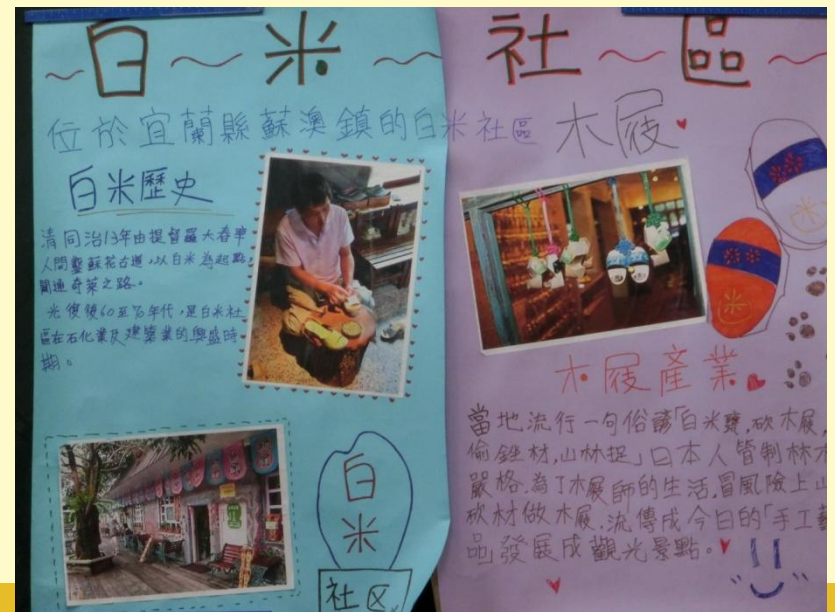 白米社區
位於宜蘭縣蘇澳鎮的白米社區
白米歷史
清同治13年由提督羅大春率
人開鑿蘇花古道,以白米為起點,
開通奇萊之路。
光復後60至70年代,是白米社
區在石化業及建築業的興盛時
期。
白
米
社区
木屐
米
米
木屐產業
當地流行一句俗諺「白米甕,砍木屐,
偷銼材,山林捉」日本人管制林木
嚴格,為了木屐師的生活,冒風險上山
砍材做木屐,流傳成今日的「手工藝
品」發展成觀光景點。